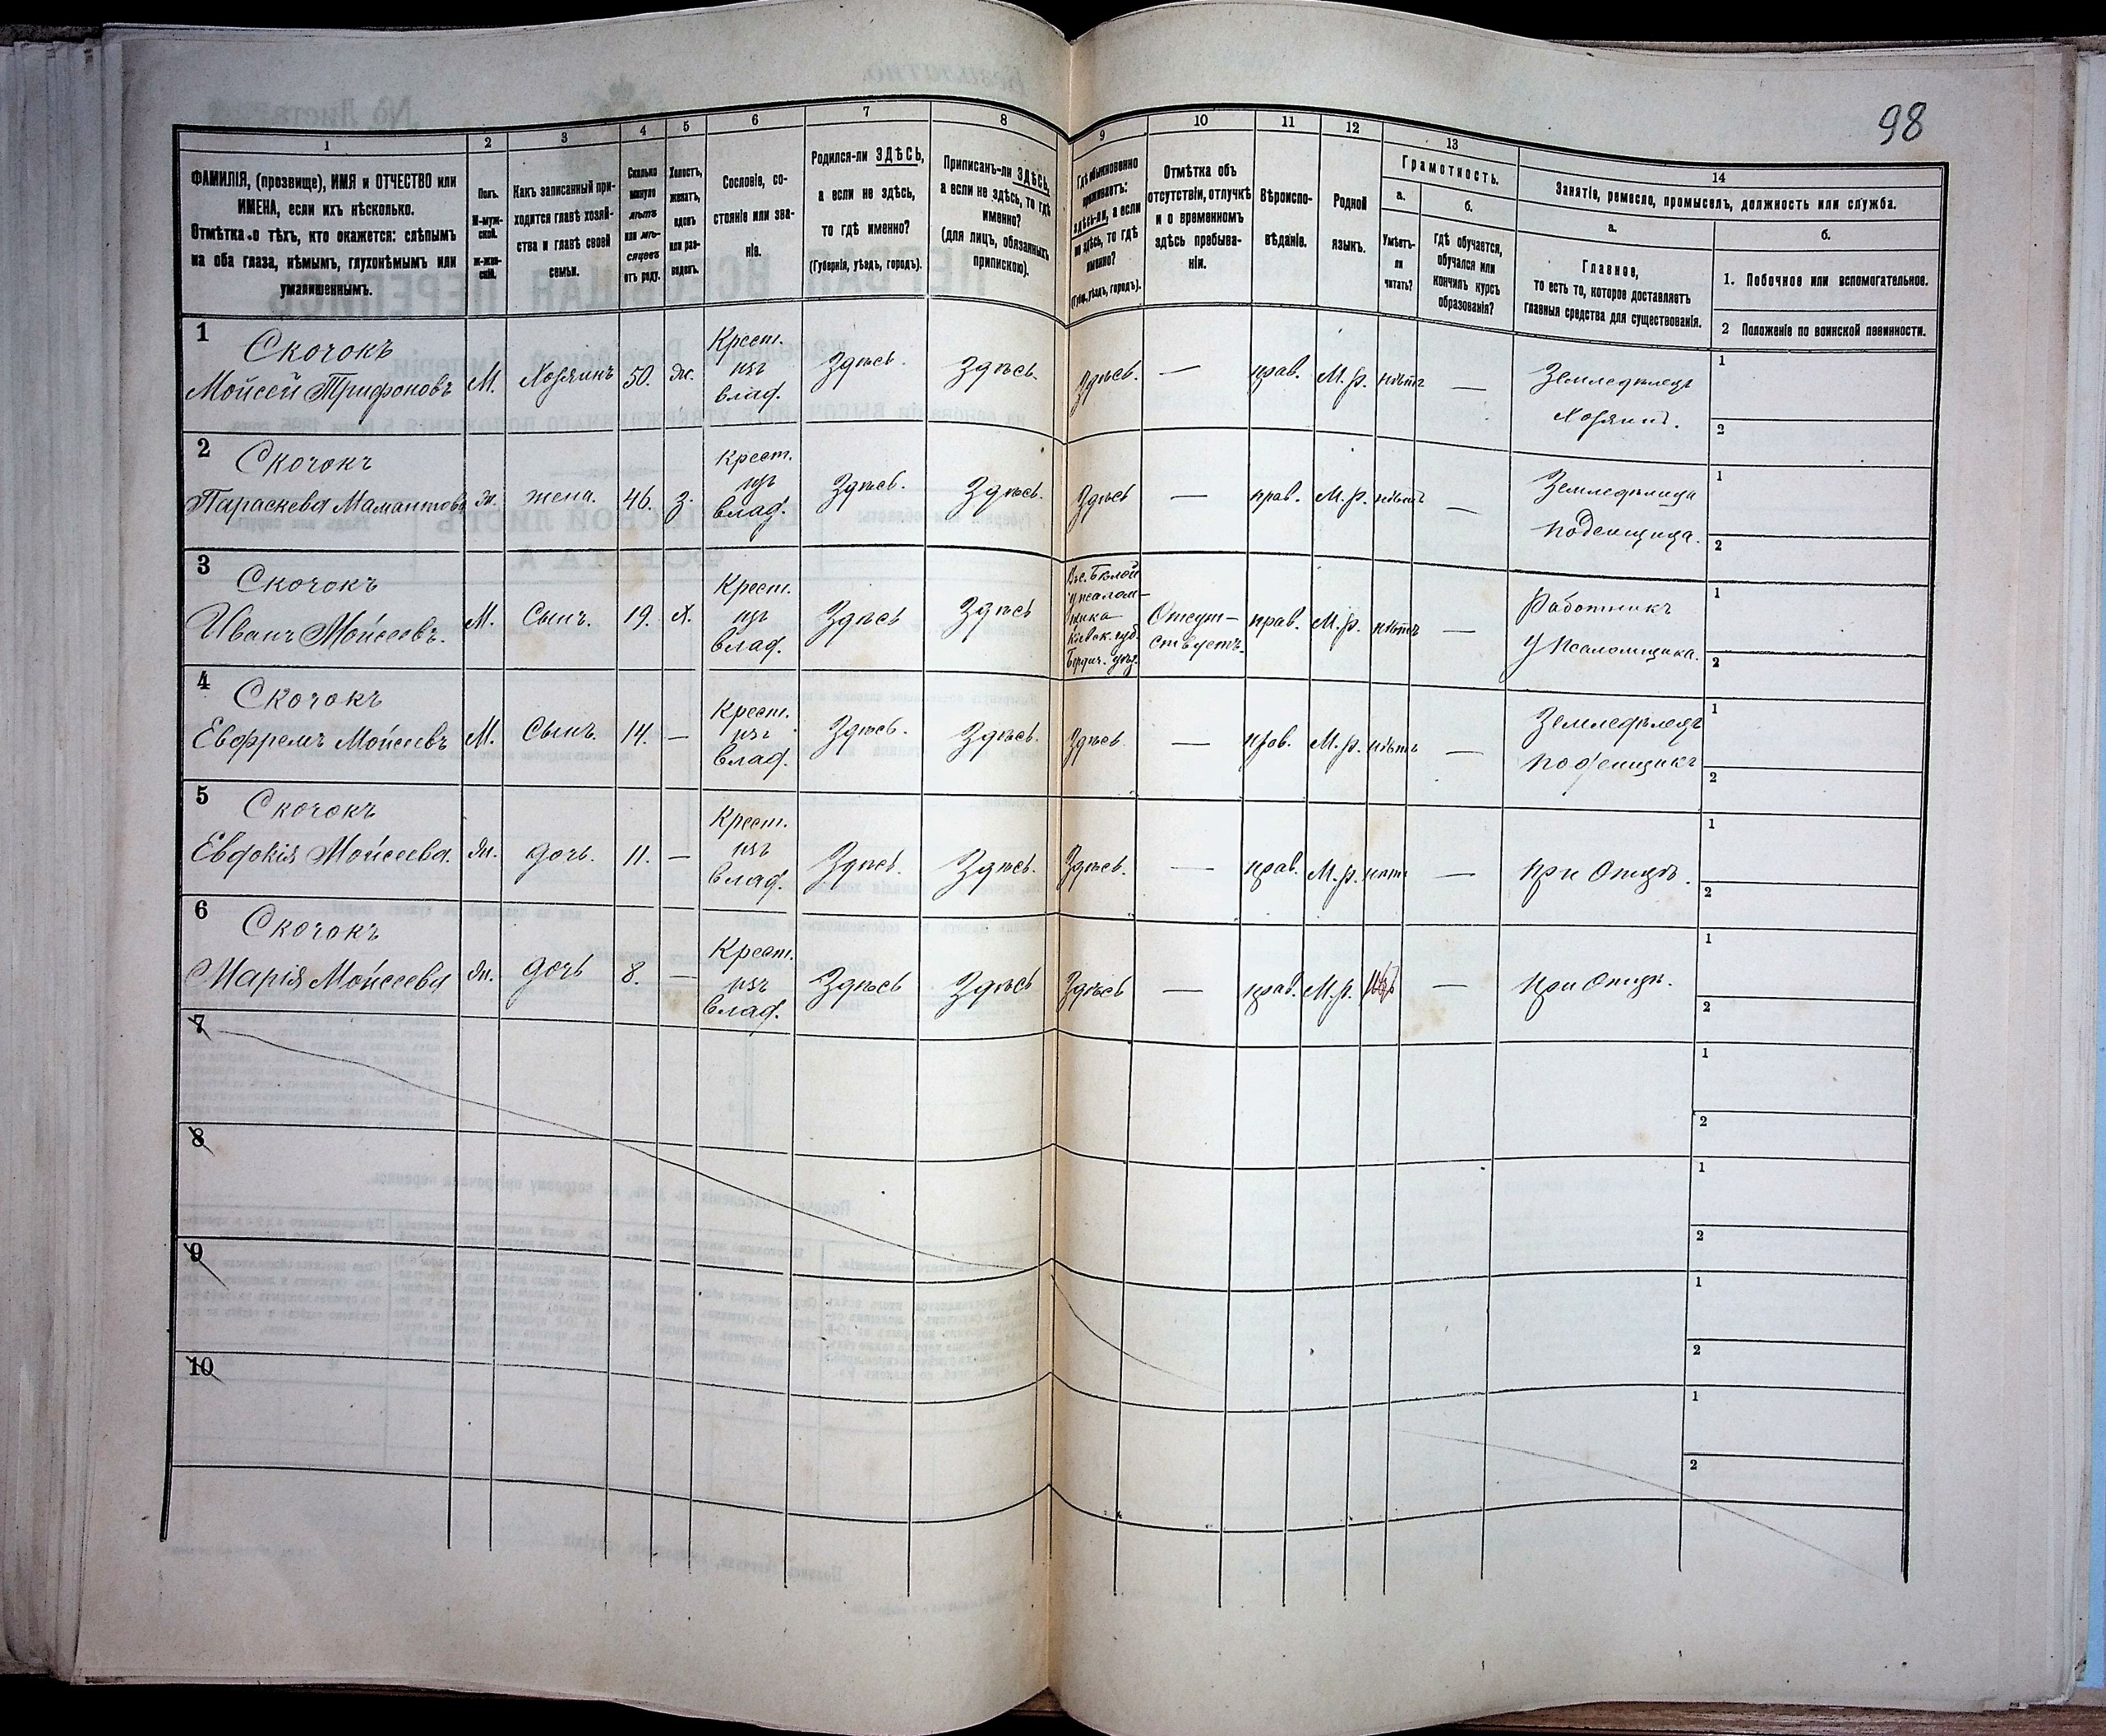 98
1
2
3
4
5
6
7
8
9
10
11
12
13
14
ФАМИЛІЯ, (прозвище), ИМЯ и ОТЧЕСТВО или
ИМЕНА, если ихъ нѣсколько.
Отмѣтка о тѣхъ, кто окажется: слѣпымъ
на оба глаза, нѣмымъ, глухонѣмымъ или
умалишеннымъ.
Полъ.
М-муж-
ской.
ж-жен-
скій.
Какъ записанный при-
ходится главѣ хозяй-
ства и главѣ своей
семьи.
Сколько
минуло
лѣтъ
или мѣ-
сяцевъ
отъ роду.
Холостъ,
женатъ,
вдовъ
или раз-
веденъ.
Сословіе, со-
стояніе или зва-
ніе.
Родился-ли ЗДѢСЬ,
а если не здѣсь,
то гдѣ именно?
(Губернія, уѣздъ, городъ).
Приписанъ-ли ЗДѢСЬ,
а если не здѣсь, то гдѣ
именно?
(для лицъ, обязанныхъ
припискою).
Гдѣ обыкновенно
проживаетъ:
здѣсь-ли, а если
не здѣсь, то гдѣ
именно?
(Губ., уѣздъ, городъ).
Отмѣтка объ
отсутствіи, отлучкѣ
и о временномъ
здѣсь пребыва-
ніи.
Вѣроиспо-
вѣданіе.
Родной
языкъ.
Грамотность.
а.
Умѣетъ-
ли
читать?
б.
гдѣ обучается,
обучался или
кончилъ курсъ
образованія?
Занятіе, ремесло, промыселъ, должность или служба.
а.
Главное,
то есть то, которое доставляетъ
главныя средства для существованія.
б.
1. Побочное или вспомогательное.
2 Положеніе по воинской повинности.
1
Скочокъ
Мойсей Трифоновъ
М.
Хозяинъ
50.
Крест.
изъ
влад.
Здѣсь.
Здѣсь.
Здѣсь.
—
прав.
М. р.
нѣтъ
—
Земледѣлецъ
Хозяинъ.
1
2
2
Скочокъ
Параскева Мамантова
жена.
46.
з.
Крест.
изъ
влад.
Здѣсь.
Здѣсь.
Здѣсь
—
прав.
М. р.
нѣтъ
—
Земледѣлица
поденщица.
1
2
3
Скочокъ
Иванъ Мойсеевъ.
М.
Сынъ.
19.
Х.
Крест.
изъ
влад.
Здѣсь
Здѣсь
псалом-
щика
Кіевск. губ.
Бердич. уѣз.
Отсут-
ствуетъ.
прав.
М. р.
нѣтъ
—
Работникъ
у псаломщика.
1
2
4
Скочокъ
Евфремъ Мойсеевъ
М.
Сынъ.
14.
—
Крест.
изъ
влад.
Здѣсь.
Здѣсь.
Здѣсь
—
прав.
М. р.
нѣтъ
—
Земледѣлецъ
поденщикъ
1
2
5
Скочокъ
Евдокія Мойсеева.
дочь.
11.
—
Крест.
изъ
влад.
Здѣсь.
Здѣсь.
Здѣсь.
—
прав.
М. р.
нѣтъ
—
при Отцѣ.
1
2
6
Скочокъ
Марія Мойсеева
дочь
8.
—
Крест.
изъ
влад.
Здѣсь
Здѣсь
Здѣсь
—
прав.
М. р.
—
при Отцѣ.
1
2
7
1
2
8
1
2
9
1
2
10
1
2